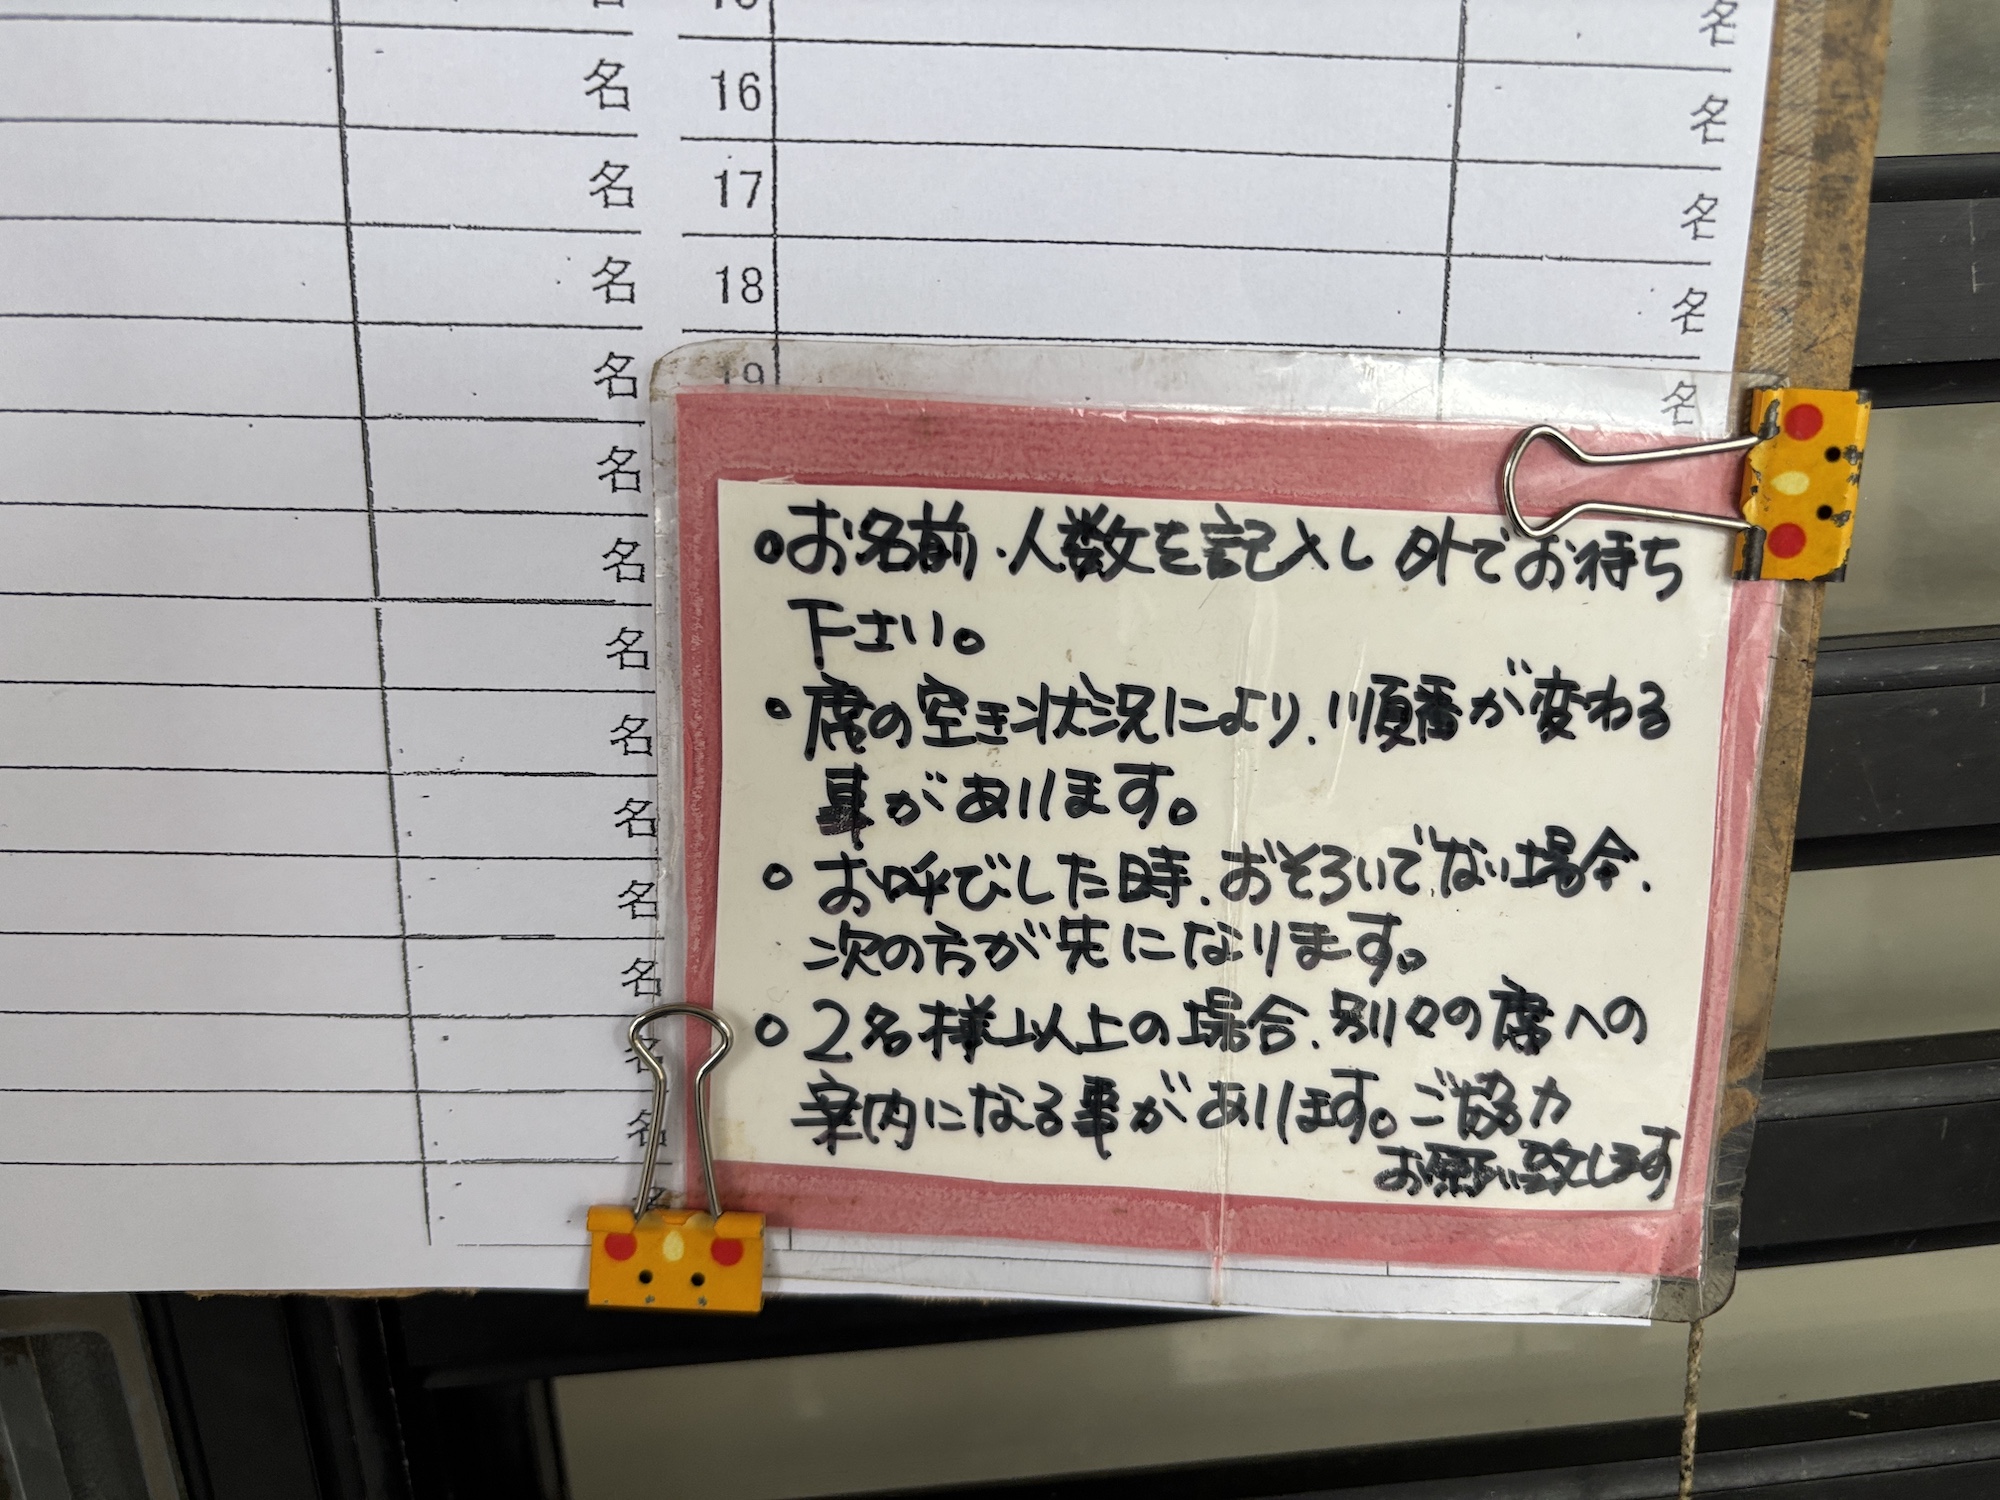 名
名
名
名
名
名
名
名
名
名
名
名
名
名
16 名
17 名
18 名
19 名
名
・お名前、人数を記入し 外でお待ち
下さい。
・席の空き状況により、順番が変わる
事があります。
・お呼びした時、おそろいでない場合、
次の方が先になります。
・2名様以上の場合、別々の席への
案内になる事があります。ご協力
お願い致します